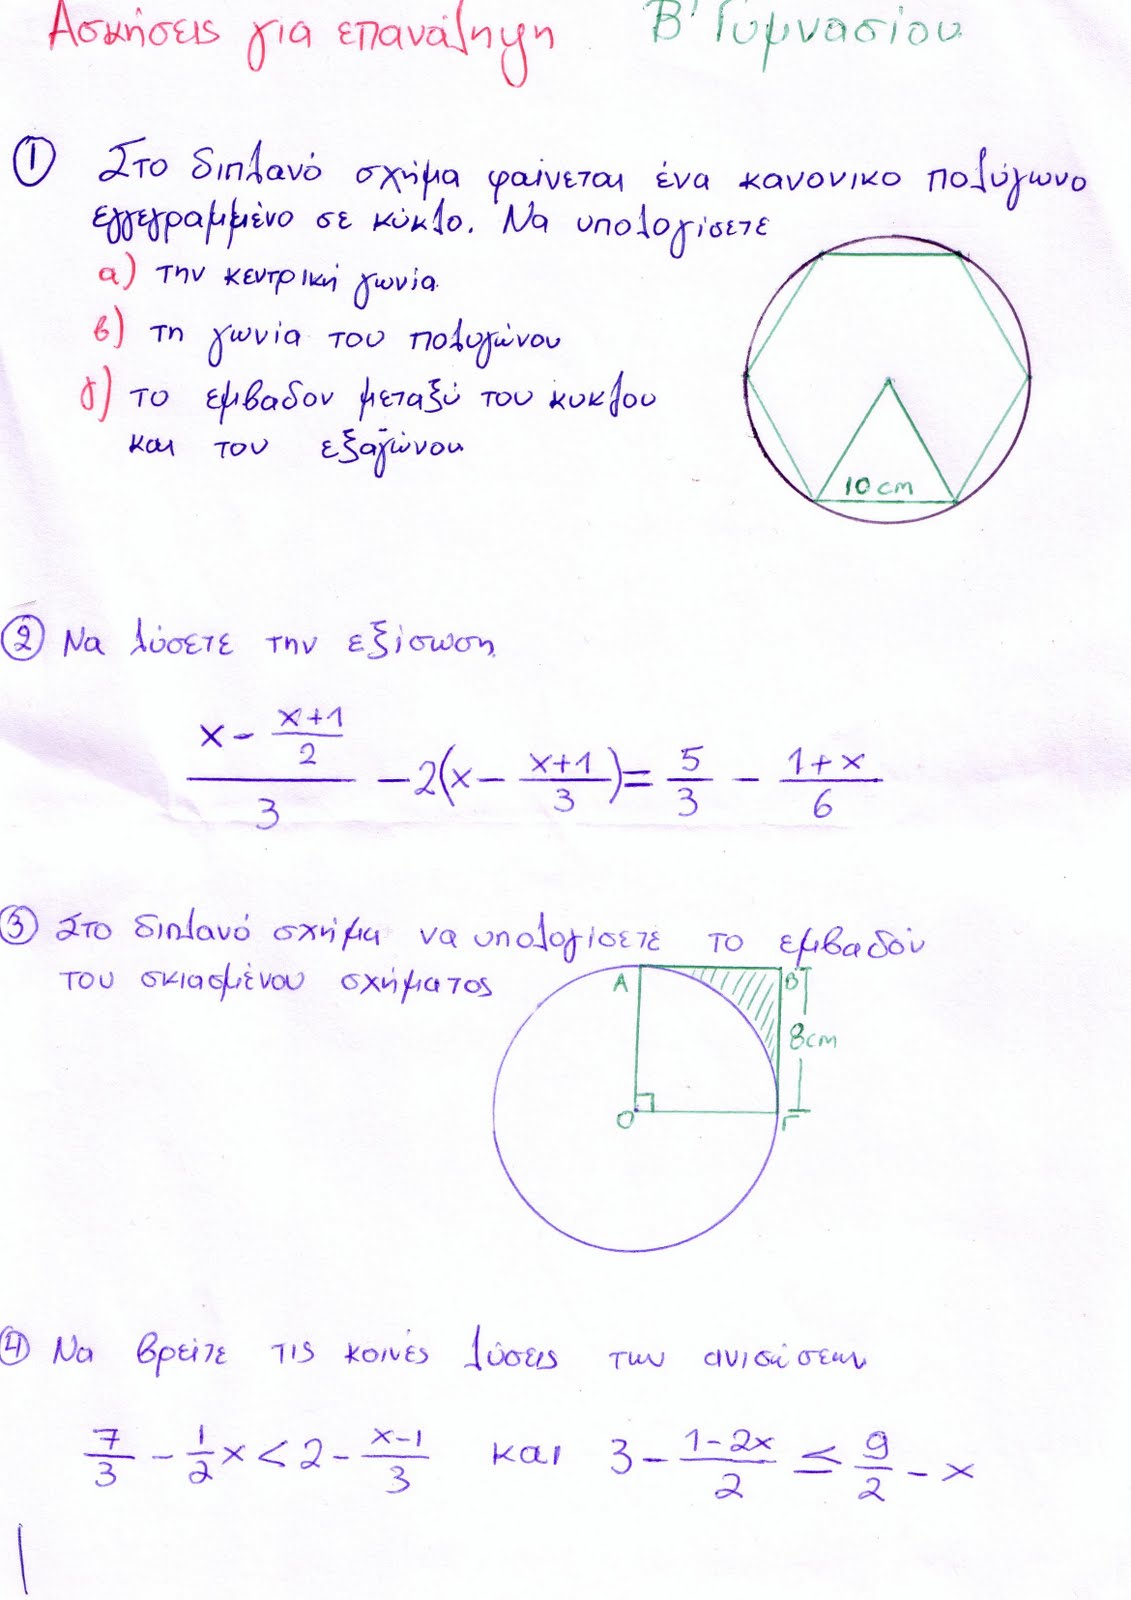 Ασκήσεις για επανάληψη Β' Γυμνασίου
① Στο διπλανό σχήμα φαίνεται ένα κανονικο πολύγωνο
εγγεγραμμένο σε κύκλο. Να υπολογίσετε
α) την κεντρική γωνία
β) τη γωνία του πολυγώνου
γ) το εμβαδον μεταξύ του κυκλου
και του εξαγώνου
10 cm
② Να λύσετε την εξίσωση
(x - (x+1)/2)/3 - 2(x - (x+1)/3) = 5/3 - (1+x)/6
③ Στο διπλανό σχήμα να υπολογίσετε το εμβαδόν
του σκιασμένου σχήματος
Α Β
8cm
Ο Γ
④ Να βρείτε τις κοινές λύσεις των ανισώσεων
7/3 - 1/2 x < 2 - (x-1)/3 και 3 - (1-2x)/2 ≤ 9/2 - x